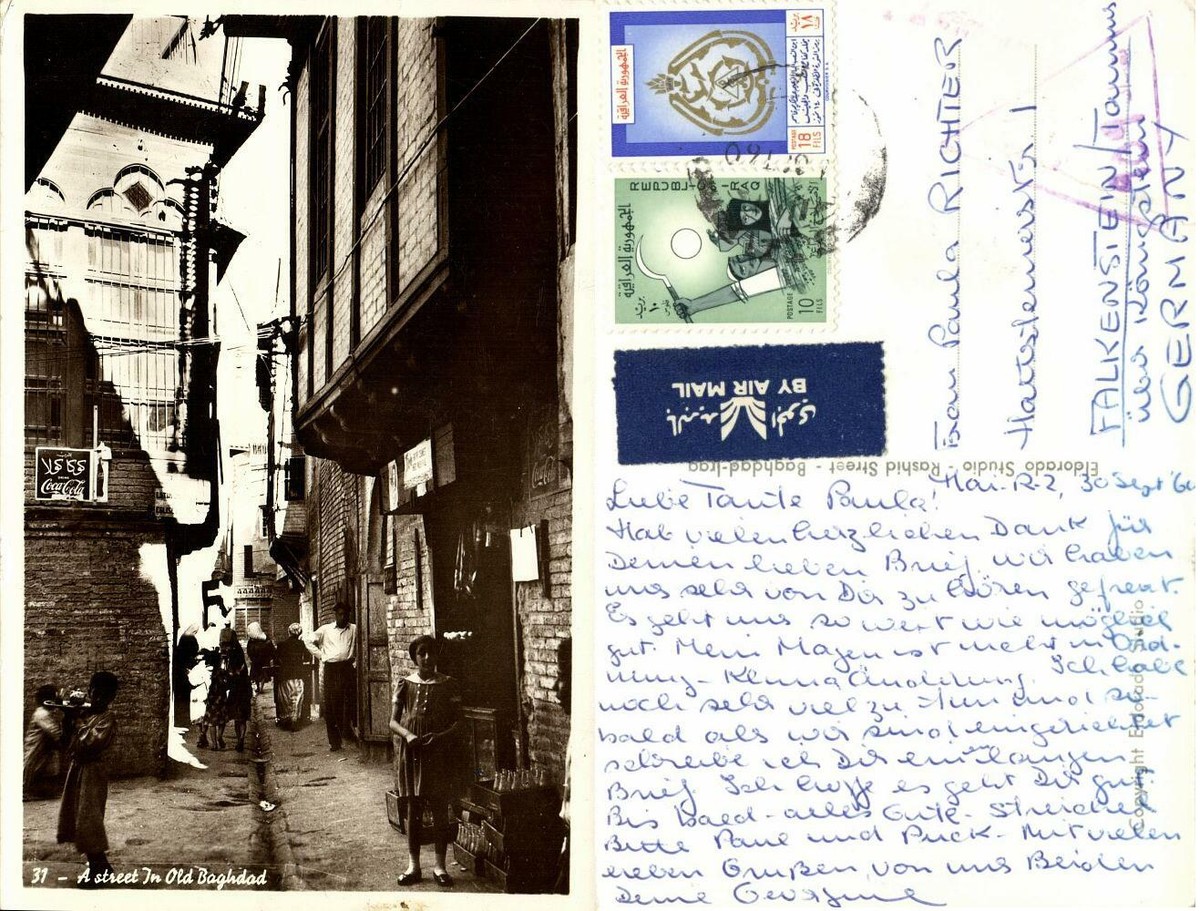 31 - A street In Old Baghdad
كوكا كولا
DRINK
Coca-Cola
الجمهورية العراقية
18
FILS
POSTAGE
REPUBLIC OF IRAQ
الجمهورية العراقية
POSTAGE 10 FILS
البريد الجوي
BY AIR MAIL
Frau Paula RICHTER
Hattsteinerstr. 1
FALKENSTEIN/Taunus
über Königstein
GERMANY
Eldorado Studio - Rashid Street - Baghdad-Iraq
Copyright Eldorado Studio
30 Sept
Liebe Tante Paula!
Hab vielen herzlichen Dank für
Deinen lieben Brief, wir haben
uns sehr von Dir zu hören gefreut.
Es geht uns so weit wie möglich
gut. Mein Magen ist nicht in Ord-
nung - Klimaänderung. Ich habe
noch sehr viel zu tun und so-
bald als wir sind eingerichtet
schreibe ich Dir einen langen
Brief. Ich hoffe es geht Dir gut
Bis bald - alles Gute.
Bitte und Puck - Mit vielen
lieben Grüßen von uns Beiden
Deine